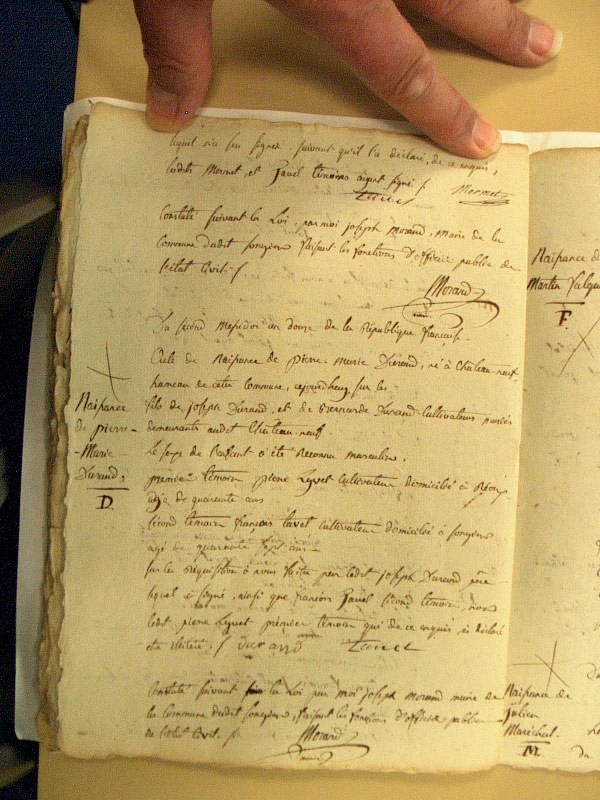 lequel n'a sçu signer, suivant qu'il l'a déclaré, de ce enquis,
lesdits Mermet, et Favel témoins ayant signé ./.
Mermet
Constaté suivant la Loi, par moi joseph Morand, Maire de la
Commune dudit faisant les fonctions d'officier public de
l'état Civil ./.
Morand
Du second Messidor an douze de la République française.
Acte de Naissance de pierre-Marie Durand, né à Chateau-neuf
hameau de cette Commune, cejourdhuy, sur les
fils de joseph Durand, et de Durand Cultivateurs mariés
demeurants audit Chateau-neuf.
le sexe de l'enfant a été Reconnu masculin.
premier témoin pierre Cultivateur domicilié à
agé de quarante ans
second témoin françois favel cultivateur domicilié à
agé de quarante sept ans
sur la Réquisition à nous faite par ledit joseph Durand père
lequel a signé, ainsi que françois Favel second témoin, non
ledit pierre premier témoin qui de ce enquis, a déclaré
être illitéré ./. durand
Constaté suivant la Loi par moi joseph Morand maire de
la Commune dudit faisant les fonctions d'officier public
de l'état Civil. ./. Morand
Naissance
de pierre-
-Marie
Durand.
D.
Naissance d
Martin
F.
Naissance de
julien
Maréchal.
M.